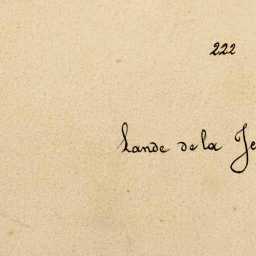 222
Lande de la Je